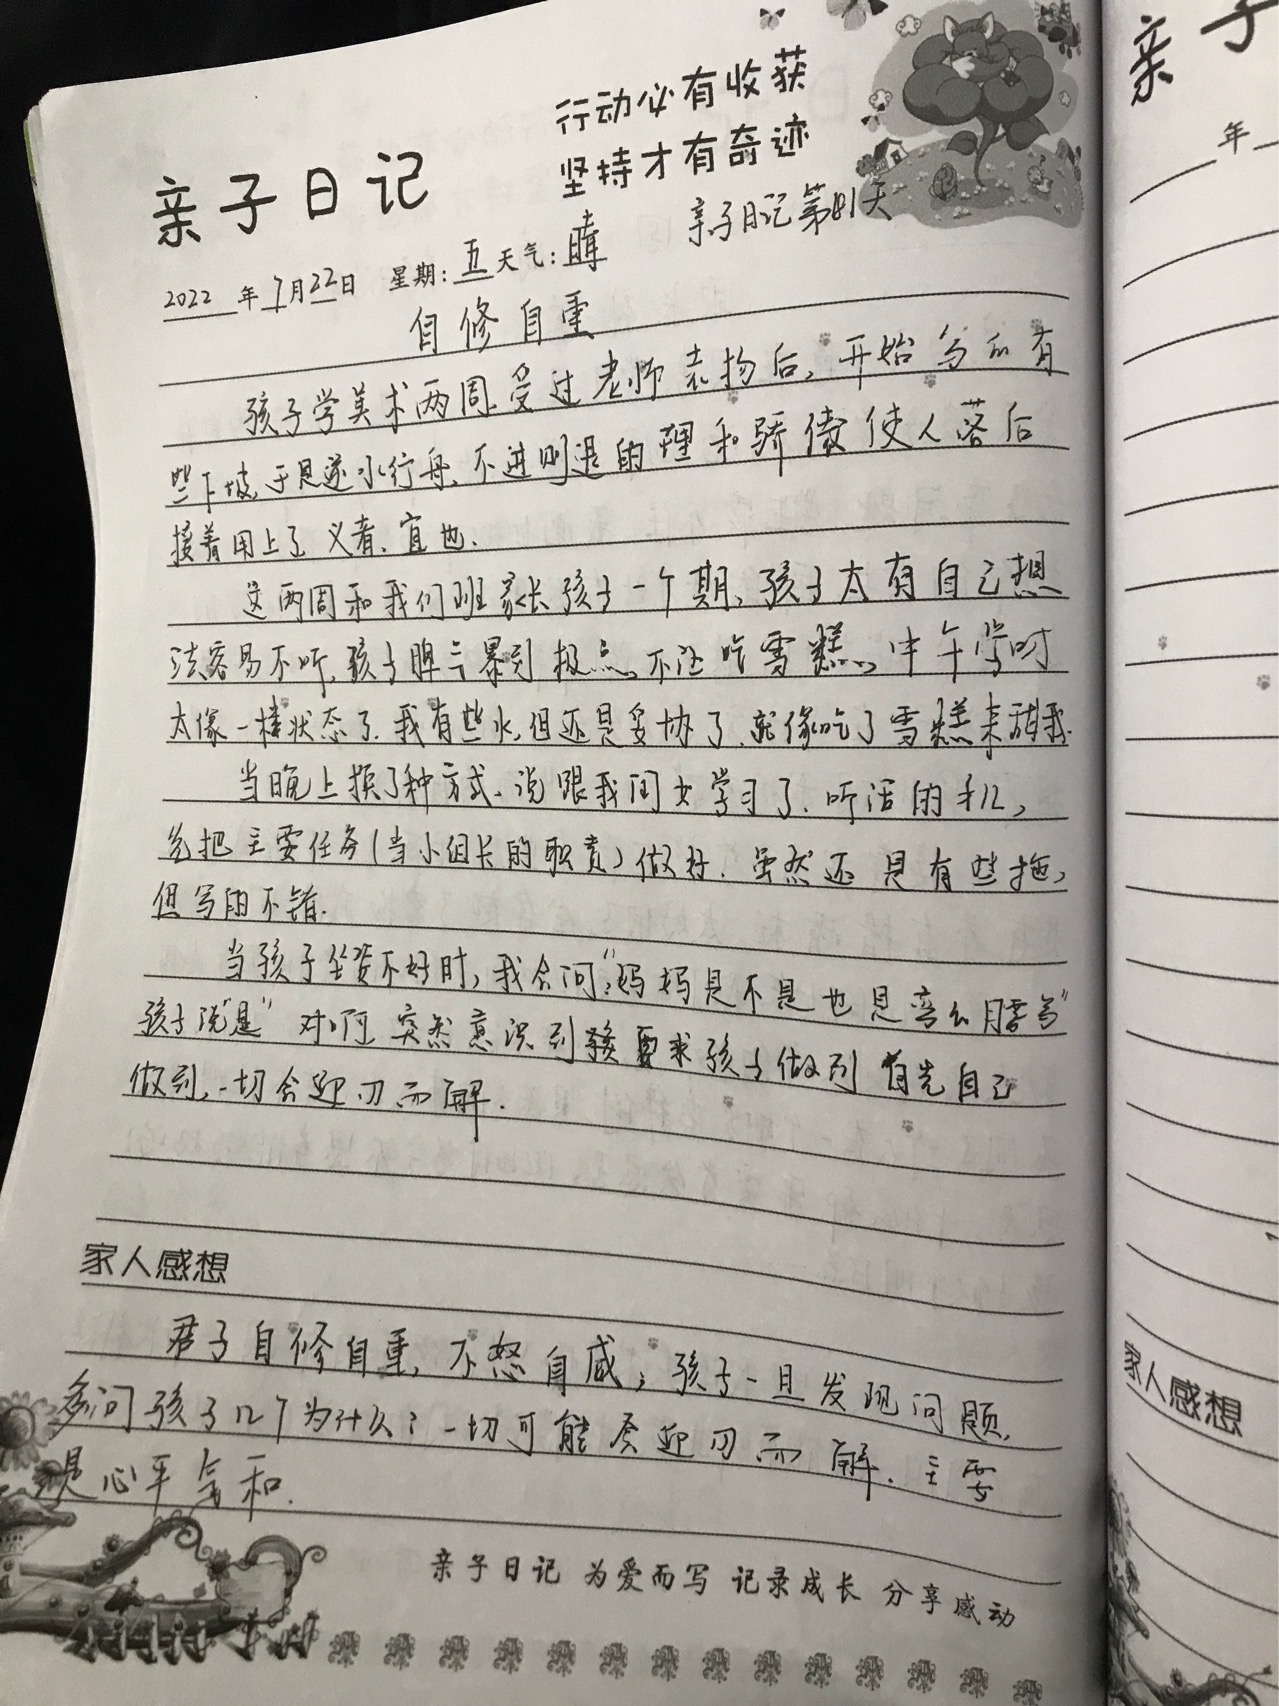 行动必有收获
坚持才有奇迹
亲子日记
亲子日记第81天
2022年7月22日 星期:五 天气:晴
自修自重
孩子学美术两周,受过老师表扬后,开始有
些下坡,于是逆水行舟,不进则退的理和骄傲使人落后
接着用上了,义者,宜也.
这两周和我们班家长孩子一个期,孩子太有自己想
法容易不听,孩子脾气暴到极点,不让吃雪糕,中午学时
太像一样状态了.我有些火,但还是妥协了,就像吃了雪糕来甜我.
当晚上换了种方式,说跟我闺女学习了.听话的
先把主要任务(当小组长的职责)做好.虽然还是有些拖,
但写的不错.
当孩子坐姿不好时,我会问:"妈妈是不是也是弯么腰写"
孩子说"是" 对啊,突然意识到要求孩子做到 首先自己
做到,一切会迎刃而解.
家人感想
君子自修自重,不怒自威;孩子一旦发现问题,
多问孩子几个为什么?一切可能会迎刃而解.主要
是心平气和.
亲子日记 为爱而写 记录成长 分享感动
亲子
年
家人感想